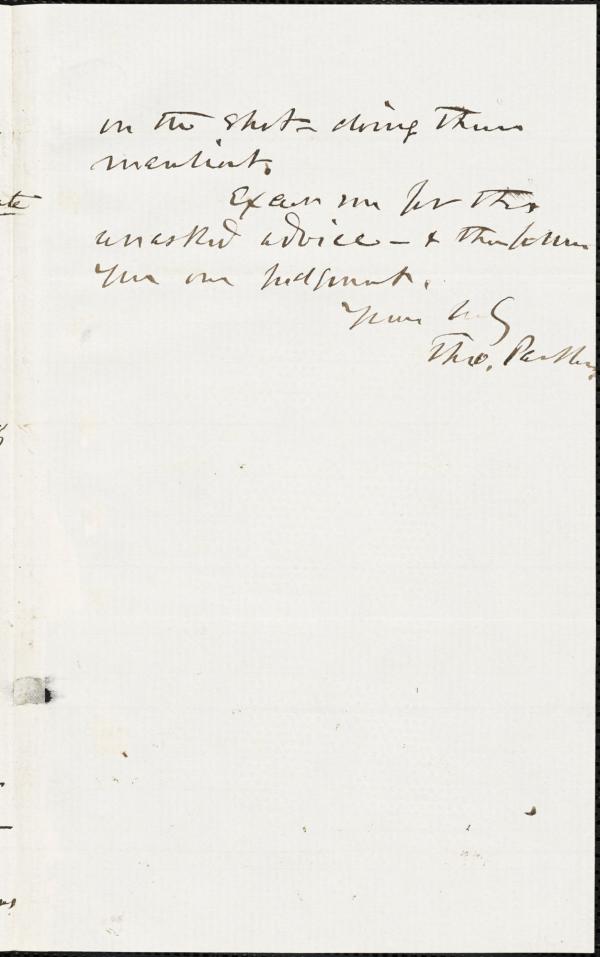 on the spot – doing there
Excuse me for this
unasked advice – & then follow
your own judgment.
Yours truly
Theo. Parker